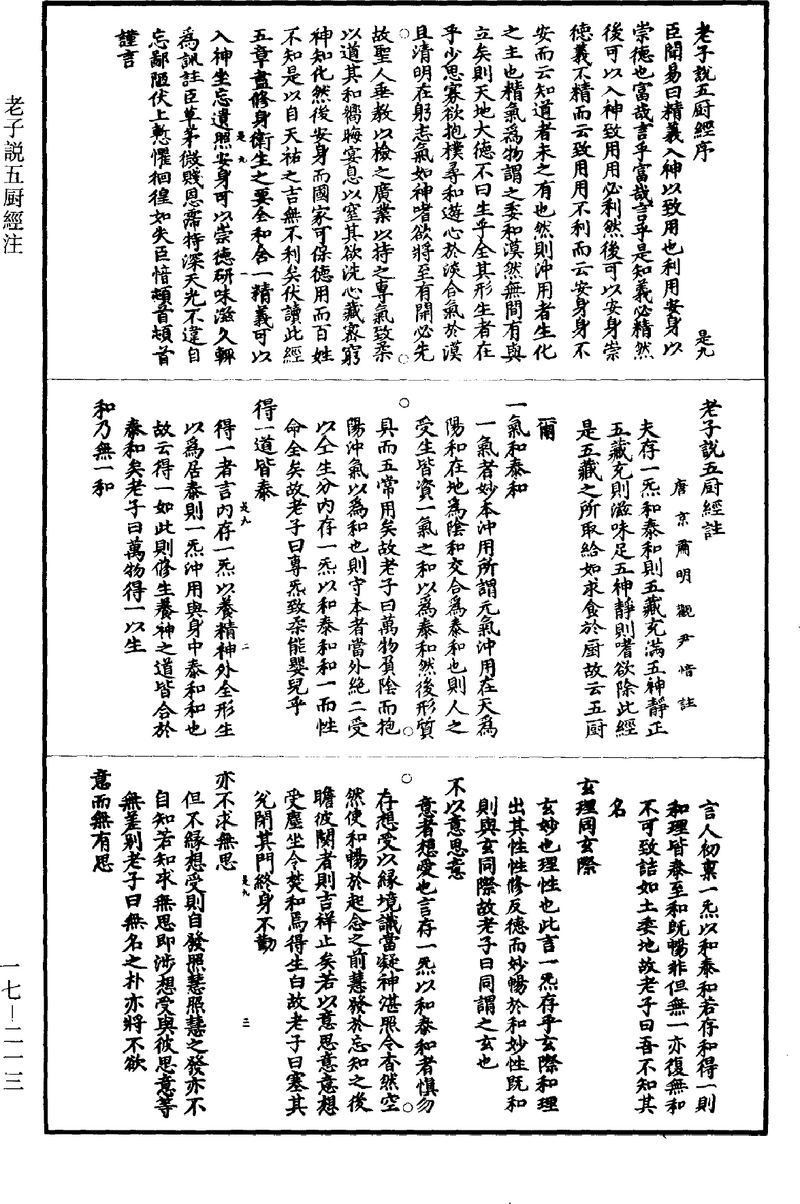 老子說五厨經注
一七—二一一三
老子說五厨經序
是九
臣聞易曰精義入神以致用也利用安身以
崇德也富哉言乎富哉言乎是知義必精然
後可以入神致用用必利然後可以安身崇
德義不精而云致用用不利而云安身身不
安而云知道者未之有也然則沖用者生化
之主也精氣為物謂之委和漠然無間有與
立矣則天地大德不曰生乎全其形生者在
乎少思寡欲抱樸尋和遊心於淡合氣於漠
且清明在躬志氣如神嗜欲將至有開必先
故聖人垂教以檢之廣業以持之專氣致柔
以道其和嚮晦宴息以窒其欲洗心藏密窮
神知化然後安身而國家可保德用而百姓
不知是以自天祐之吉無不利矣伏讀此經
五章盡修身衛生之要全和含一精義可以
入神坐忘遺照安身可以崇德研味滋久輒
為訓註臣草茅微賤恩霈特深天光不違自
忘鄙陋伏上慙懼徊徨如失臣愔頓首頓首
謹言
老子說五厨經註
唐京肅明觀尹愔註
夫存一炁和泰和則五藏充滿五神靜正
五藏充則滋味足五神靜則嗜欲除此經
是五藏之所取給如求食於厨故云五厨
爾
一氣和泰和
一氣者妙本沖用所謂元氣沖用在天為
陽和在地為陰和交合為泰和也則人之
受生皆資一氣之和以為泰和然後形質
具而五常用矣故老子曰萬物負陰而抱
陽沖氣以為和也則守本者當外絕二受
以全生分內存一炁以和泰和和一而性
命全矣故老子曰專炁致柔能嬰兒乎
得一道皆泰
得一者言內存一炁以養精神外全形生
以為居泰則一炁沖用與身中泰和和也
故云得一如此則修生養神之道皆合於
泰和矣老子曰萬物得一以生
和乃無一和
言人初稟一炁以和泰和若存和得一則
和理皆泰至和既暢非但無一亦復無和
不可致詰如土委地故老子曰吾不知其
名
玄理同玄際
玄妙也理性也此言一炁存乎玄際和理
出其性性修反德而妙暢於和妙性既和
則與玄同際故老子曰同謂之玄也
不以意思意
意者想受也言存一炁以和泰和者慎勿
存想受以緣境識當凝神湛照令杳然空
然使和暢於起念之前慧發於忘知之後
瞻彼闋者則吉祥止矣若以意思意意想
受塵坐令焚和焉得生白故老子曰塞其
兊閉其門終身不勤
亦不求無思
但不緣想受則自發照慧照慧之發亦不
自知若知求無思即涉想受與彼思意等
無差别老子曰無名之朴亦將不欲
意而無有思